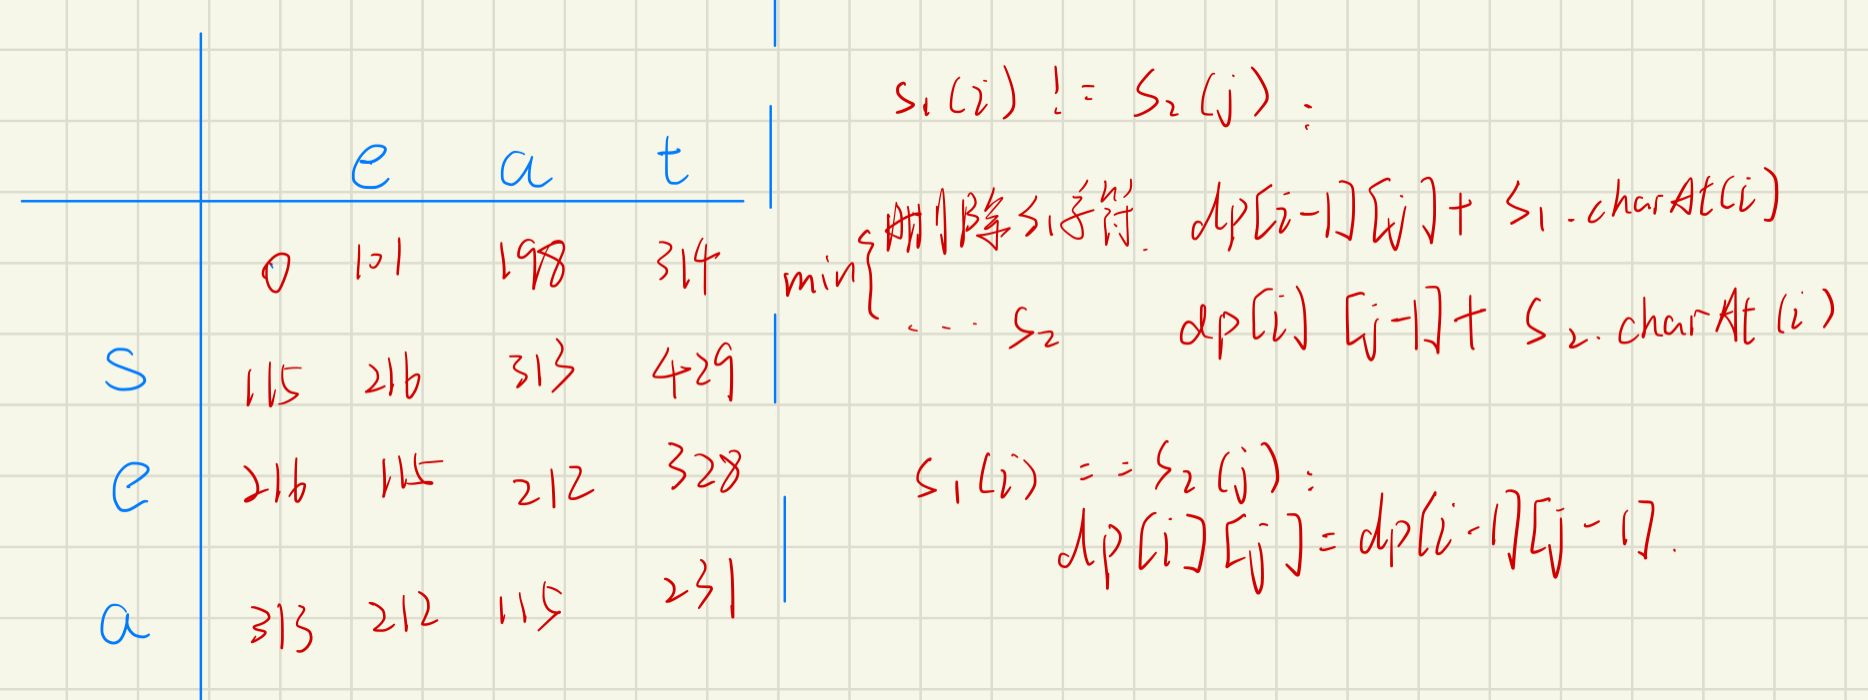 e a t
0 101 198 314
s 115 216 313 429
e 216 115 212 328
a 313 212 115 231
s₁(i) != s₂(j) :
min{ 删除s₁字符. dp[i-1][j] + s₁.charAt(i)
.... s₂ dp[i][j-1] + s₂.charAt(i)
s₁(i) == s₂(j) :
dp[i][j] = dp[i-1][j-1].